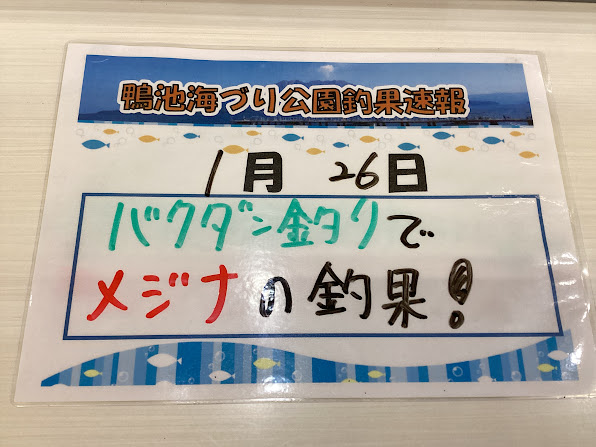 鴨池海づり公園釣果速報
1月 26日
バクダン釣りで
メジナの釣果!